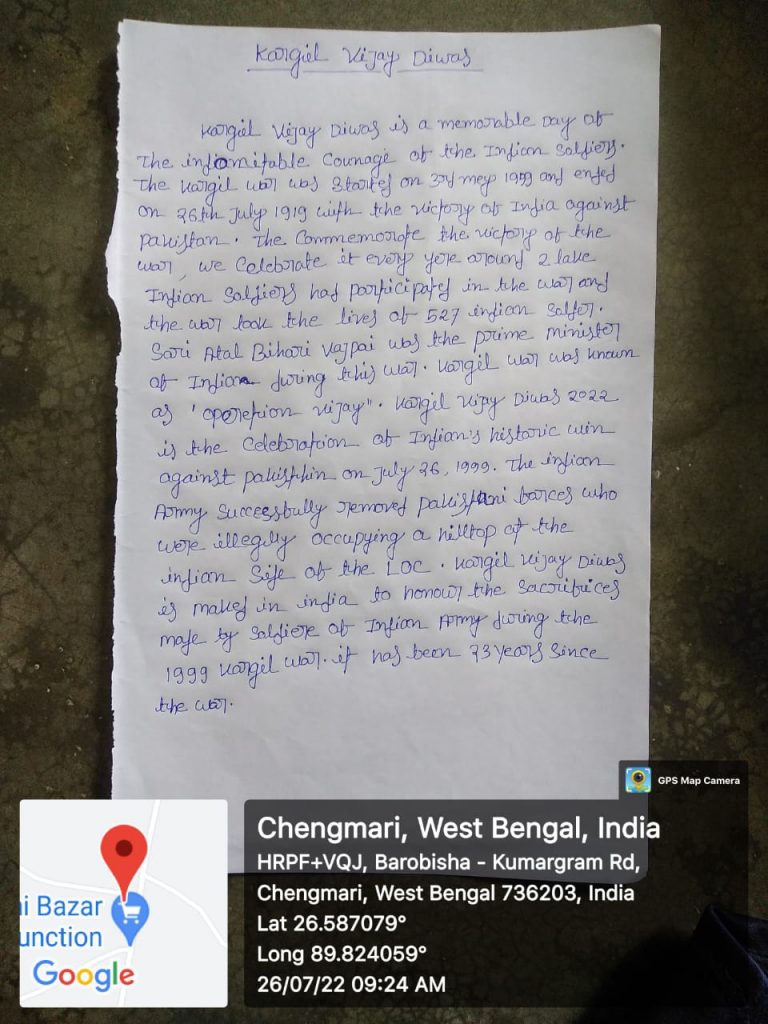 Kargil Vijay Diwas
Kargil Vijay Diwas is a memorable Day of
The indomitable Counage of the Indian Soldiers.
The Kargil war was Started on 3rd mey 1959 and ended
on 26th July 1919 with the victory of India against
pakistan. The Commemorate the victory of the
war, we Celebrate it every yere around 2 lake
Indian Soldiers had participated in the war and
the war took the lives of 527 indian Soldier.
Sari Atal Bihari Vajpai was the prime minister
of Indian during this war. Kargil war was known
as "operetion vijay". Kargil Vijay Diwas 2022
is the Celebration of Indian's historic win
against pakisthin on July 26, 1999. The indian
Army Successfully removed pakistani forces who
were illeglly occupying a hilltop of the
indian Side of the LOC. Kargil Vijay Diwas
is maked in india to honour the Sacrifices
made by Soldiere of Indian Army during the
1999 Kargil war. it has been 23 years Since
the war.
GPS Map Camera
Chengmari, West Bengal, India
HRPF+VQJ, Barobisha - Kumargram Rd,
Chengmari, West Bengal 736203, India
Lat 26.587079°
Long 89.824059°
26/07/22 09:24 AM
ni Bazar
unction
Google